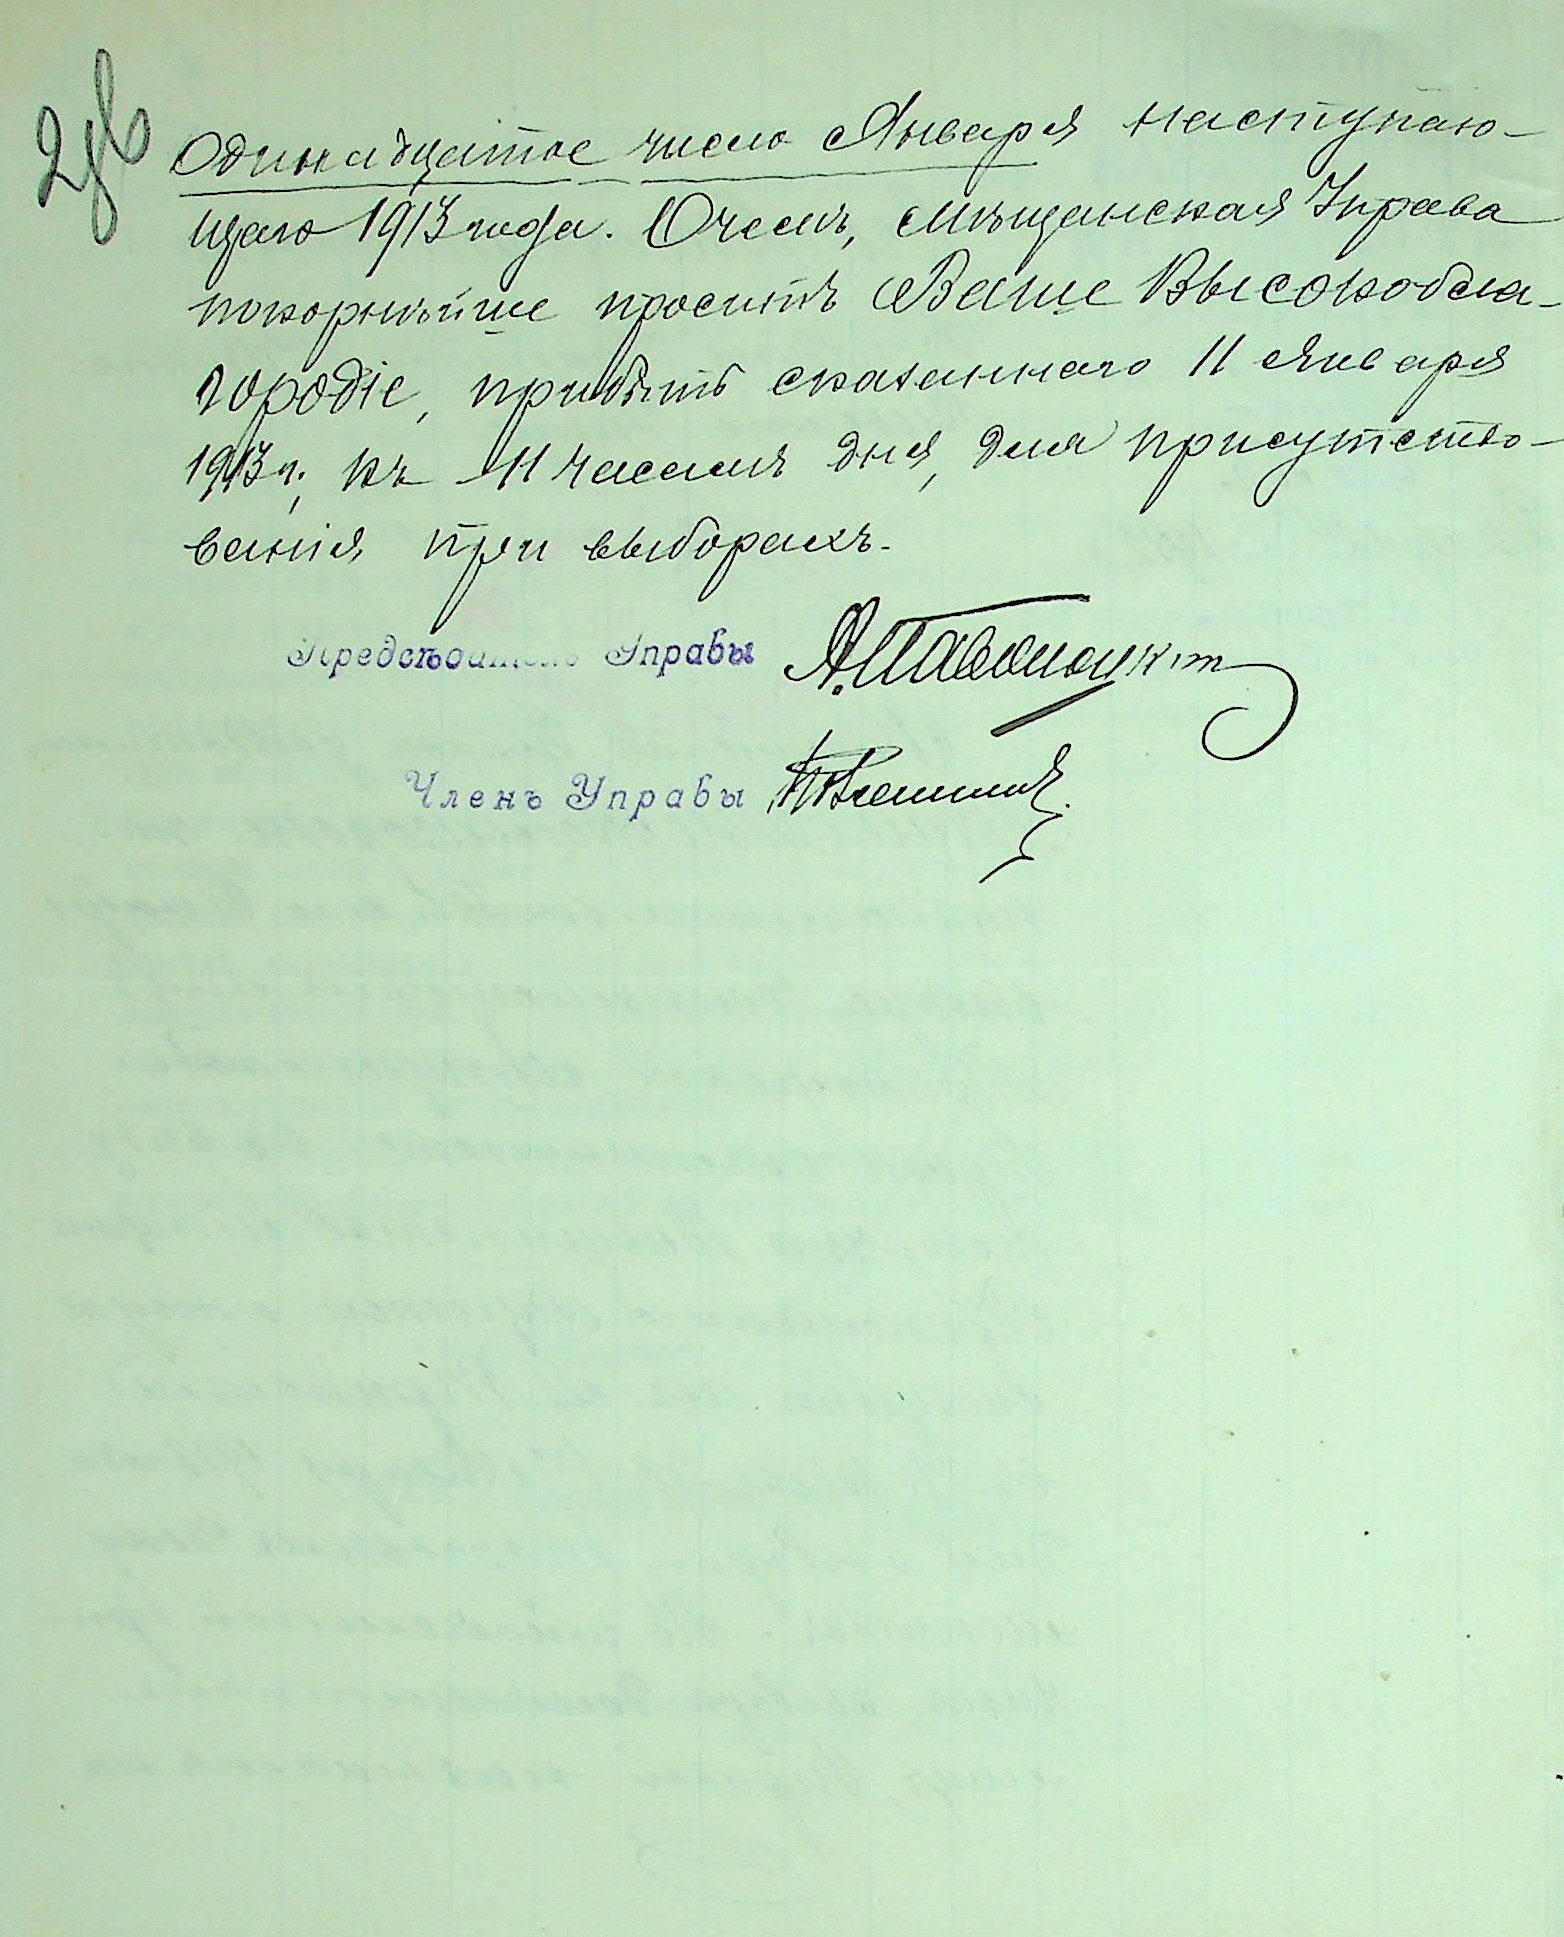 Одинадцатое число Января наступаю-
щаго 1913 года. О чемъ, мѣщанская Управа
покорнѣйше проситъ Ваше Высокобла-
городіе, прибыть сказаннаго 11 Января
1913 г., къ 11 часамъ дня, для присутство-
ванія при выборахъ.
Предсѣдатель Управы
Членъ Управы